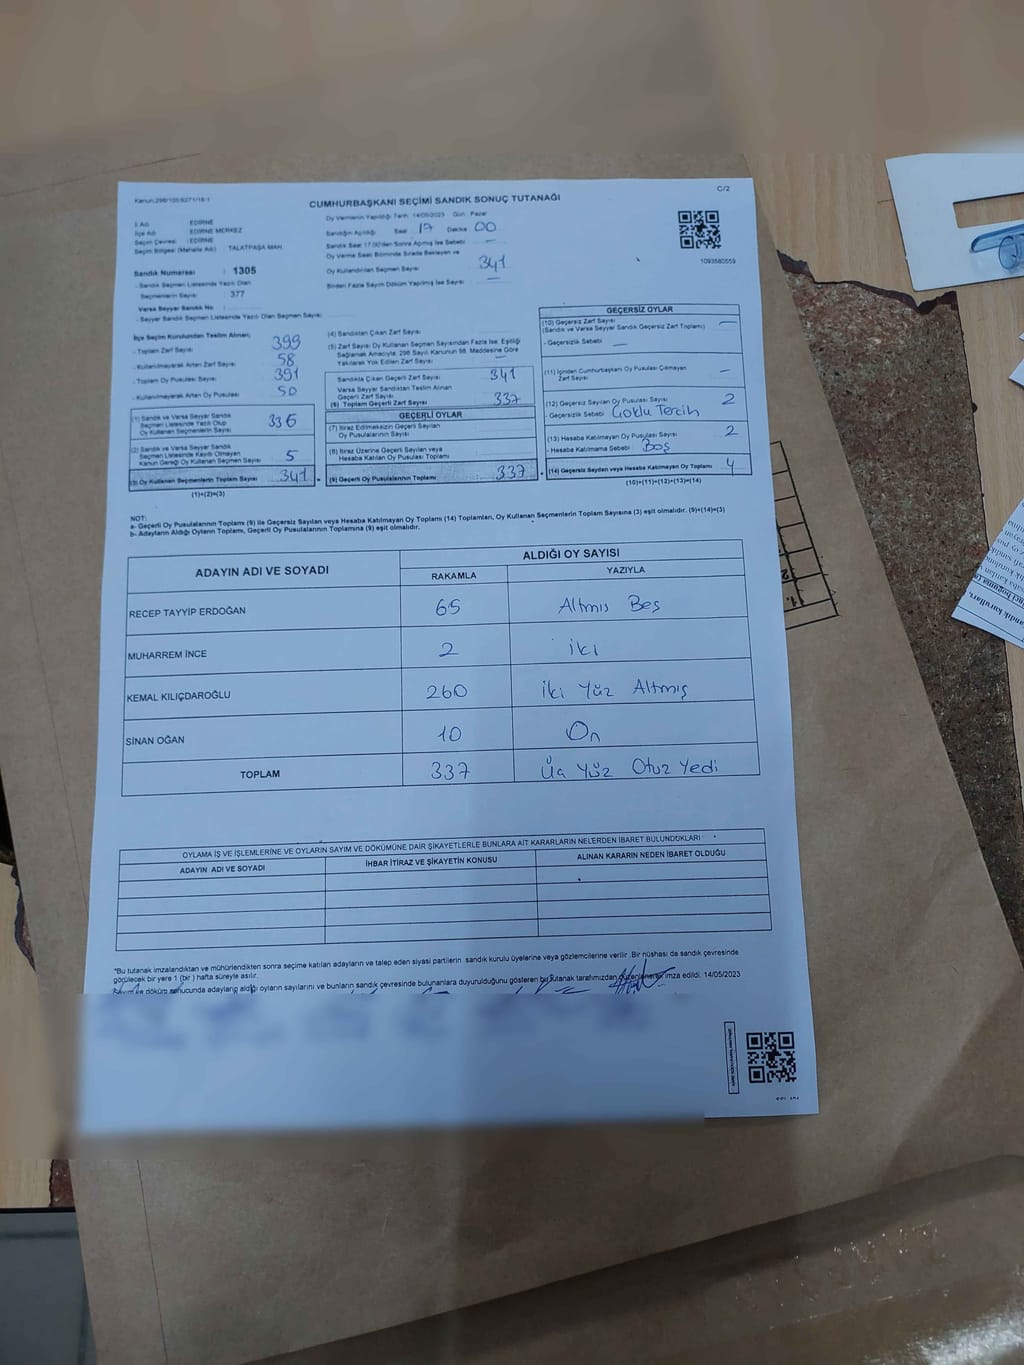 Kanun:298/105/6271/18-1
C/2
CUMHURBAŞKANI SEÇİMİ SANDIK SONUÇ TUTANAĞI
İl Adı : EDİRNE
İlçe Adı : EDİRNE MERKEZ
Seçim Çevresi : EDİRNE
Seçim Bölgesi (Mahalle Adı) : TALATPAŞA MAH.
Sandık Numarası : 1305
- Sandık Seçmen Listesinde Yazılı Olan
Seçmenlerin Sayısı : 377
Varsa Seyyar Sandık No :
- Seyyar Sandık Seçmen Listesinde Yazılı Olan Seçmen Sayısı :
Oy Vermenin Yapıldığı Tarih 14/05/2023 Gün Pazar
Sandığın Açıldığı Saat 17 Dakika 00
Sandık Saat 17.00'den Sonra Açılmış İse Sebebi —
Oy Verme Saati Bitiminde Sırada Bekleyen ve
Oy Kullandırılan Seçmen Sayısı 341
Birden Fazla Sayım Döküm Yapılmış İse Sayısı —
1093580559
İlçe Seçim Kurulundan Teslim Alınan;
- Toplam Zarf Sayısı: 399
- Kullanılmayarak Artan Zarf Sayısı: 58
- Toplam Oy Pusulası Sayısı: 391
- Kullanılmayarak Artan Oy Pusulası: 50
(1) Sandık ve Varsa Seyyar Sandık
Seçmen Listesinde Yazılı Olup
Oy Kullanan Seçmenlerin Sayısı 336
(2) Sandık ve Varsa Seyyar Sandık
Seçmen Listesinde Kayıtlı Olmayan
Kanun Gereği Oy Kullanan Seçmen Sayısı 5
(3) Oy Kullanan Seçmenlerin Toplam Sayısı 341
(1)+(2)=(3)
(4) Sandıktan Çıkan Zarf Sayısı:
(5) Zarf Sayısı Oy Kullanan Seçmen Sayısından Fazla İse, Eşitliği
Sağlamak Amacıyla, 298 Sayılı Kanunun 98. Maddesine Göre
Yakılarak Yok Edilen Zarf Sayısı: —
Sandıkta Çıkan Geçerli Zarf Sayısı: 341
Varsa Seyyar Sandıktan Teslim Alınan
Geçerli Zarf Sayısı:
(6) Toplam Geçerli Zarf Sayısı: 337
GEÇERLİ OYLAR
(7) İtiraz Edilmeksizin Geçerli Sayılan
Oy Pusulalarının Sayısı
(8) İtiraz Üzerine Geçerli Sayılan veya
Hesaba Katılan Oy Pusulası Toplamı
(9) Geçerli Oy Pusulalarının Toplamı 337
GEÇERSİZ OYLAR
(10) Geçersiz Zarf Sayısı:
(Sandık ve Varsa Seyyar Sandık Geçersiz Zarf Toplamı) —
- Geçersizlik Sebebi : —
(11) İçinden Cumhurbaşkanı Oy Pusulası Çıkmayan
Zarf Sayısı —
(12) Geçersiz Sayılan Oy Pusulası Sayısı 2
- Geçersizlik Sebebi : Çoklu Tercih
(13) Hesaba Katılmayan Oy Pusulası Sayısı 2
- Hesaba Katılmama Sebebi : Boş
(14) Geçersiz Sayılan veya Hesaba Katılmayan Oy Toplamı 4
(10)+(11)+(12)+(13)=(14)
NOT:
a- Geçerli Oy Pusulalarının Toplamı (9) ile Geçersiz Sayılan veya Hesaba Katılmayan Oy Toplamı (14) Toplamları, Oy Kullanan Seçmenlerin Toplam Sayısına (3) eşit olmalıdır. (9)+(14)=(3)
b- Adayların Aldığı Oyların Toplamı, Geçerli Oy Pusulalarının Toplamına (9) eşit olmalıdır.
ADAYIN ADI VE SOYADI ALDIĞI OY SAYISI
RAKAMLA YAZIYLA
RECEP TAYYİP ERDOĞAN 65 Altmış Beş
MUHARREM İNCE 2 iki
KEMAL KILIÇDAROĞLU 260 iki Yüz Altmış
SİNAN OĞAN 10 On
TOPLAM 337 Üç Yüz Otuz Yedi
OYLAMA İŞ VE İŞLEMLERİNE VE OYLARIN SAYIM VE DÖKÜMÜNE DAİR ŞİKAYETLERLE BUNLARA AİT KARARLARIN NELERDEN İBARET BULUNDUKLARI
ADAYIN ADI VE SOYADI İHBAR İTİRAZ VE ŞİKAYETİN KONUSU ALINAN KARARIN NEDEN İBARET OLDUĞU
*Bu tutanak imzalandıktan ve mühürlendikten sonra seçime katılan adayların ve talep eden siyasi partilerin sandık kurulu üyelerine veya gözlemcilerine verilir. Bir nüshası da sandık çevresinde
görülecek bir yere 1 (bir ) hafta süreyle asılır.
Sayım ve döküm sonucunda adayların aldığı oyların sayılarını ve bunların sandık çevresinde bulunanlara duyurulduğunu gösteren bu tutanak tarafımızdan düzenlenerek imza edildi. 14/05/2023